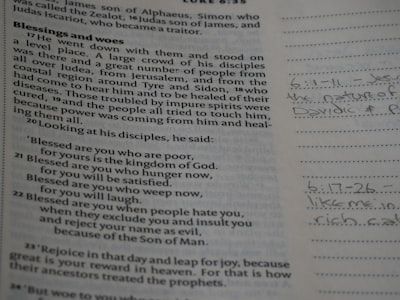 LUKE 6:35
James son of Alphaeus, Simon who
was called the Zealot, 16 Judas son of James, and
Judas Iscariot, who became a traitor.
Blessings and woes
17 He went down with them and stood on
a level place. A large crowd of his disciples
was there and a great number of people from
all over Judea, from Jerusalem, and from the
coastal region around Tyre and Sidon, 18 who
had come to hear him and to be healed of their
diseases. Those troubled by impure spirits were
cured, 19 and the people all tried to touch him,
because power was coming from him and heal-
ing them all.
20 Looking at his disciples, he said:
'Blessed are you who are poor,
for yours is the kingdom of God.
21 Blessed are you who hunger now,
for you will be satisfied.
Blessed are you who weep now,
for you will laugh.
22 Blessed are you when people hate you,
when they exclude you and insult you
and reject your name as evil,
because of the Son of Man.
23 'Rejoice in that day and leap for joy, because
great is your reward in heaven. For that is how
their ancestors treated the prophets.
24 'But woe to you who
6:1-11 -
the nature of
David &
6:17-26 -
like me in
rich